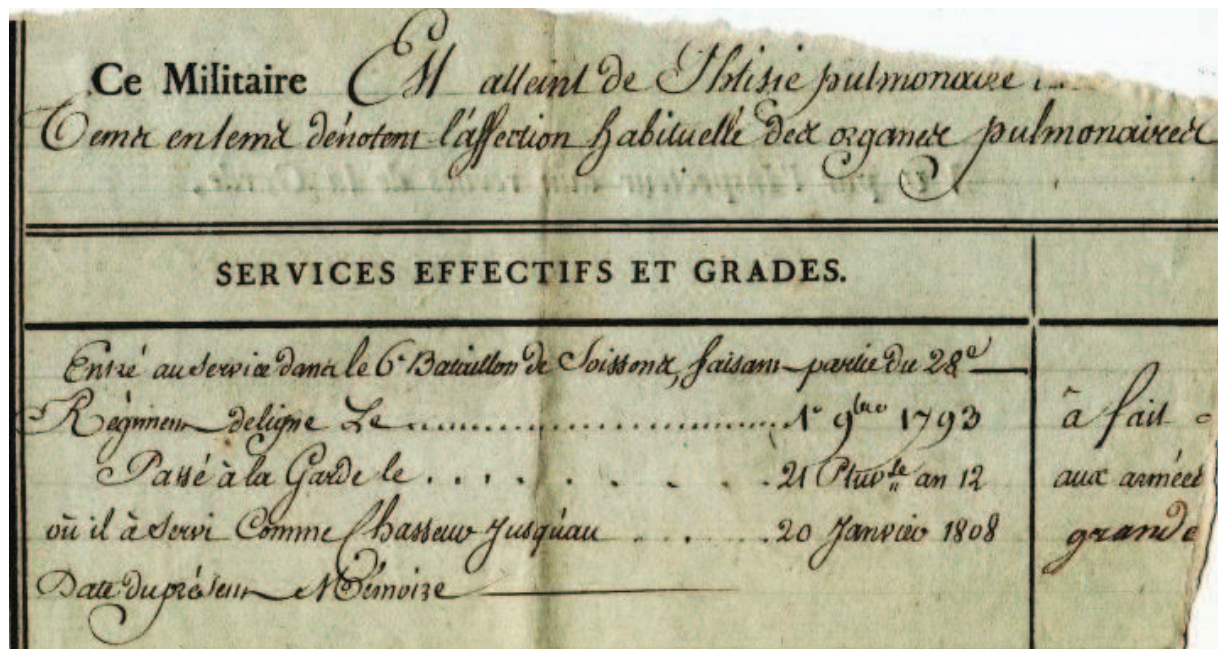 Ce Militaire Est atteint de Phtisie pulmonaire
Tems en tems dénotent l'affection habituelle des organes pulmonaires
SERVICES EFFECTIFS ET GRADES.
Entré au service dans le 6e Bataillon de Soissons, faisant partie du 28e
Régiment de ligne Le .............................. 1er 9bre 1793
Passé à la Garde le . . . . . . . . . 21 Pluvse an 12
où il à Servi Comme Chasseur Jusqu'au . . . . . 20 Janvier 1808
Date du présent Mémoire
à fait
aux armées
grande